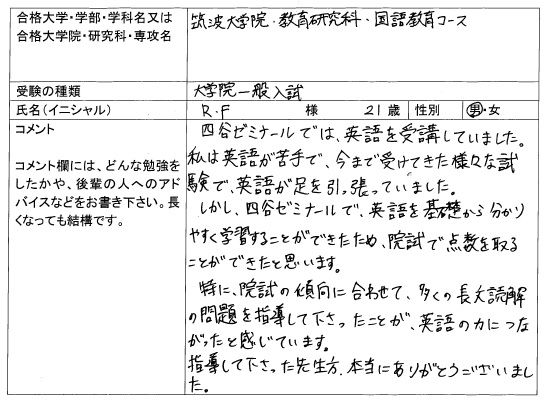 合格大学・学部・学科名又は
合格大学院・研究科・専攻名
筑波大学院・教育研究科・国語教育コース
受験の種類
大学院一般入試
氏名(イニシャル)
R.F 様 21歳 性別 男・女
コメント
コメント欄には、どんな勉強を
したかや、後輩の人へのアド
バイスなどをお書き下さい。長
くなっても結構です。
四谷ゼミナールでは、英語を受講していました。
私は英語が苦手で、今まで受けてきた様々な試
験で、英語が足を引っ張っていました。
しかし、四谷ゼミナールで、英語を基礎から分かり
やすく学習することができたため、院試で点数を取る
ことができたと思います。
特に、院試の傾向に合わせて、多くの長文読解
の問題を指導して下さったことが、英語の力につな
がったと感じています。
指導して下さった先生方、本当にありがとうございまし
た。